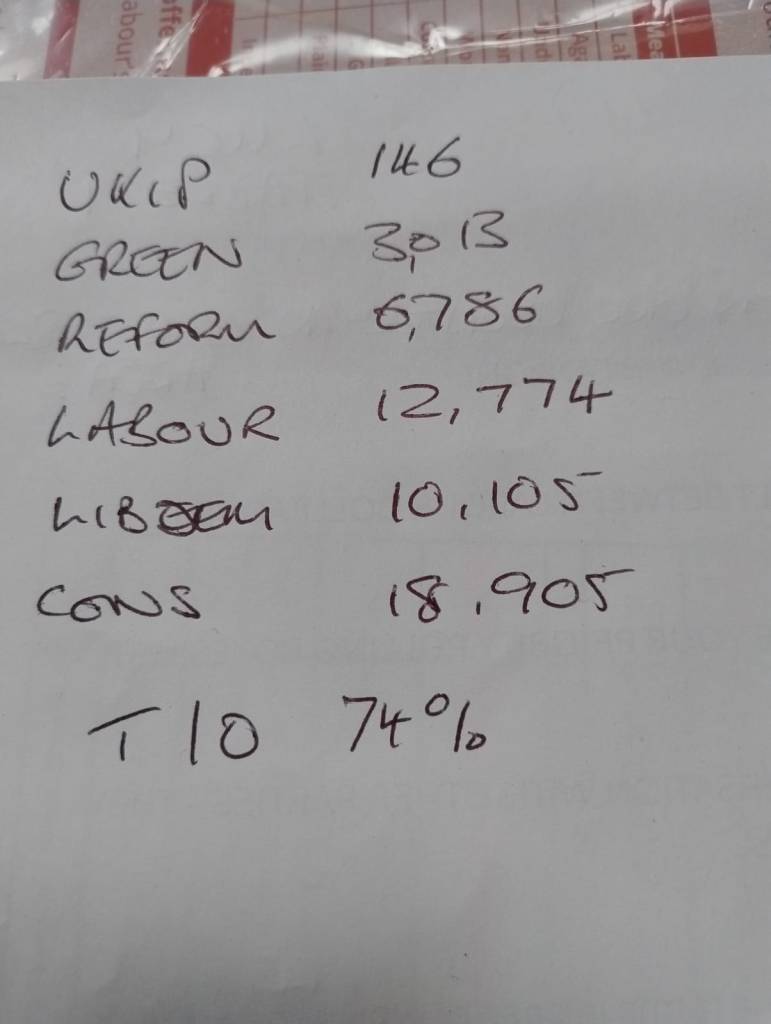 UKIP 146
GREEN 3,013
REFORM 6,786
LABOUR 12,774
LIBDEM 10,105
CONS 18,905
T/O 74%